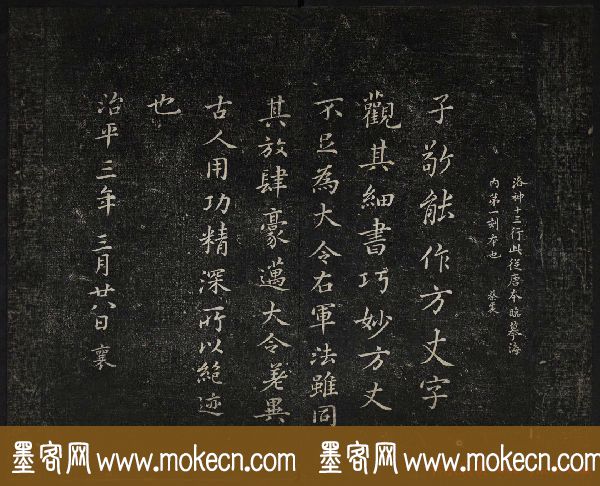 洛神十三行此從唐本臨摹海
內第一刻本也 蔡襄
子敬能作方丈字
觀其細書巧妙方丈
不足為大令右軍法雖同
其放肆豪邁大令差異
古人用功精深所以絕迹
也
治平三年三月廿八日襄
墨客网 www.mokecn.com 墨客网 www.mokecn.com